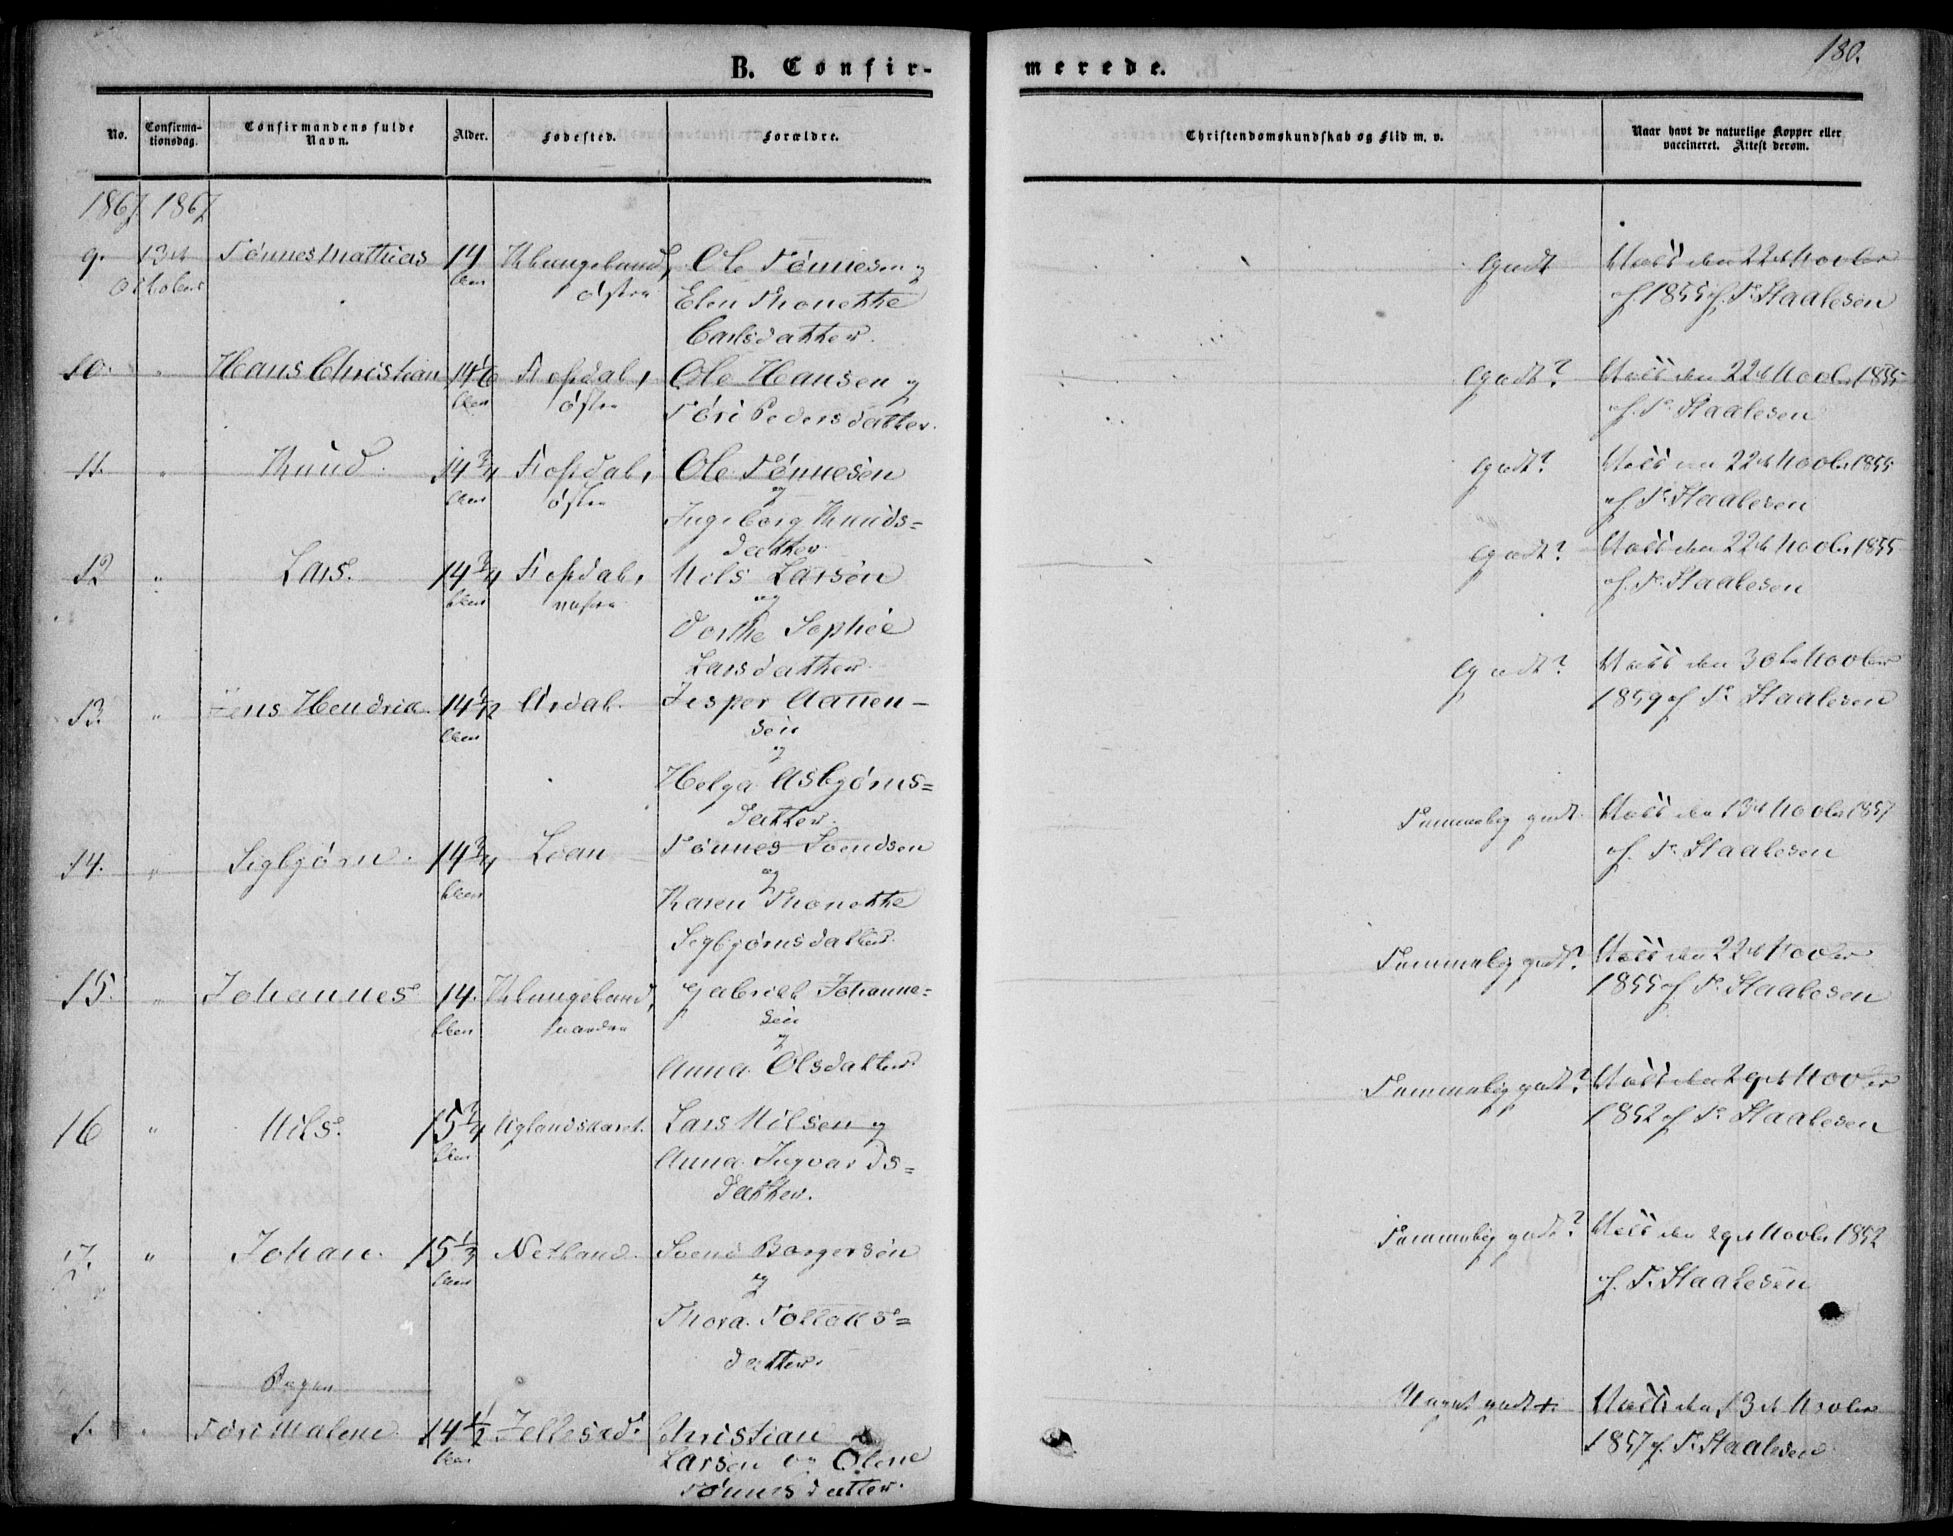 180.
B. Confir-
merede.
No.
Confirma-
tionsdag.
Confirmandens fulde
Navn.
Alder.
Fødested.
Forældre.
Christendomskundskab og Flid m. v.
Naar havt de naturlige Kopper eller
vaccineret. Attest derom.
1867 1867
9. 13de Tønnes Mathias 14 Klungeland, Ole Tønnesen og
October østre Elen Thonette
Carlsdatter.
Godt Vacc den 22de Novbr
af 1855 af T. Staalesen
10. " Hans Christian 14 1/6 Fossdal, Ole Hansen og
østre Tøri Pedersdatter.
Godt? Vacc den 22de Novbr 1855
af T. Staalesen
11. " Knud. 14 3/4 Fossdal, Ole Tønnesen
østre og
Ingeborg Knuds=
datter.
Godt? Vacc den 22de Novbr 1855
af T. Staalesen
12 " Lars. 14 3/4 Fossdal, Nils Larsen
vestre og
Dorthe Sophie
Larsdatter.
Godt? Vacc den 22de Novbr 1855
af T. Staalesen
13. " Jens Hendrik. 14 1/12 Ardal. Jesper Aanen-
sen
og
Helga Asbjørns=
datter.
Godt? Vacc den 30te Novbr
1859 af T. Staalesen
14. " Sigbjørn. 14 3/4 Loan Tønnes Svendsen
og
Karen Thonette
Sigbjørnsdatter.
Temmelig godt. Vacc den 13de Novbr 1857
af T. Staalesen
15. " Johannes 14. Klungeland, Gabriel Johanne=
sen
og
Anna Olsdatter.
Temmelig godt? Vacc den 22de Novbr
1855 af T. Staalesen
16 " Nils. 15 3/4 Uglandskaret. Lars Nilsen og
Anna Ingvards=
datter.
Temmelig godt? Vacc den 29de Novbr
1852 af T. Staalesen
17. " Johan. 15 1/3 Netland. Svend Borgersen
og
Thora Tollaks=
datter.
Temmelig godt? Vacc den 29de Novbr 1852
af T. Staalesen
Piger
1. " Tøri Malene 14 1/2 Jellestad. Christian
Larsen og Olene
Tønnesdatter.
Meget godt +. Vacc den 13de Novbr
1857 af T. Staalesen